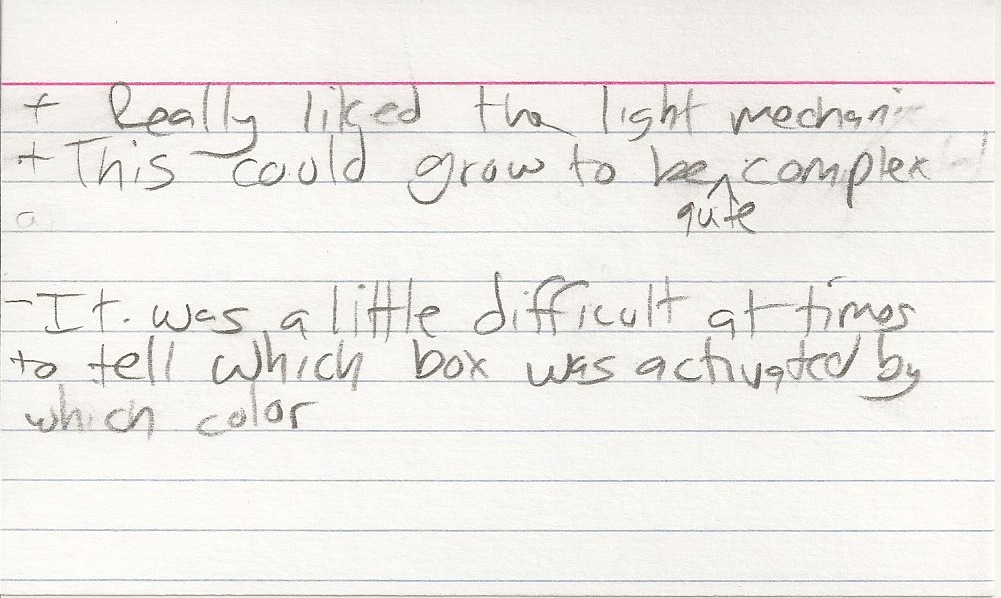 + Really liked the light mechani
+ This could grow to be ^ complex
quite
- It was a little difficult at times
to tell which box was activated by
which color